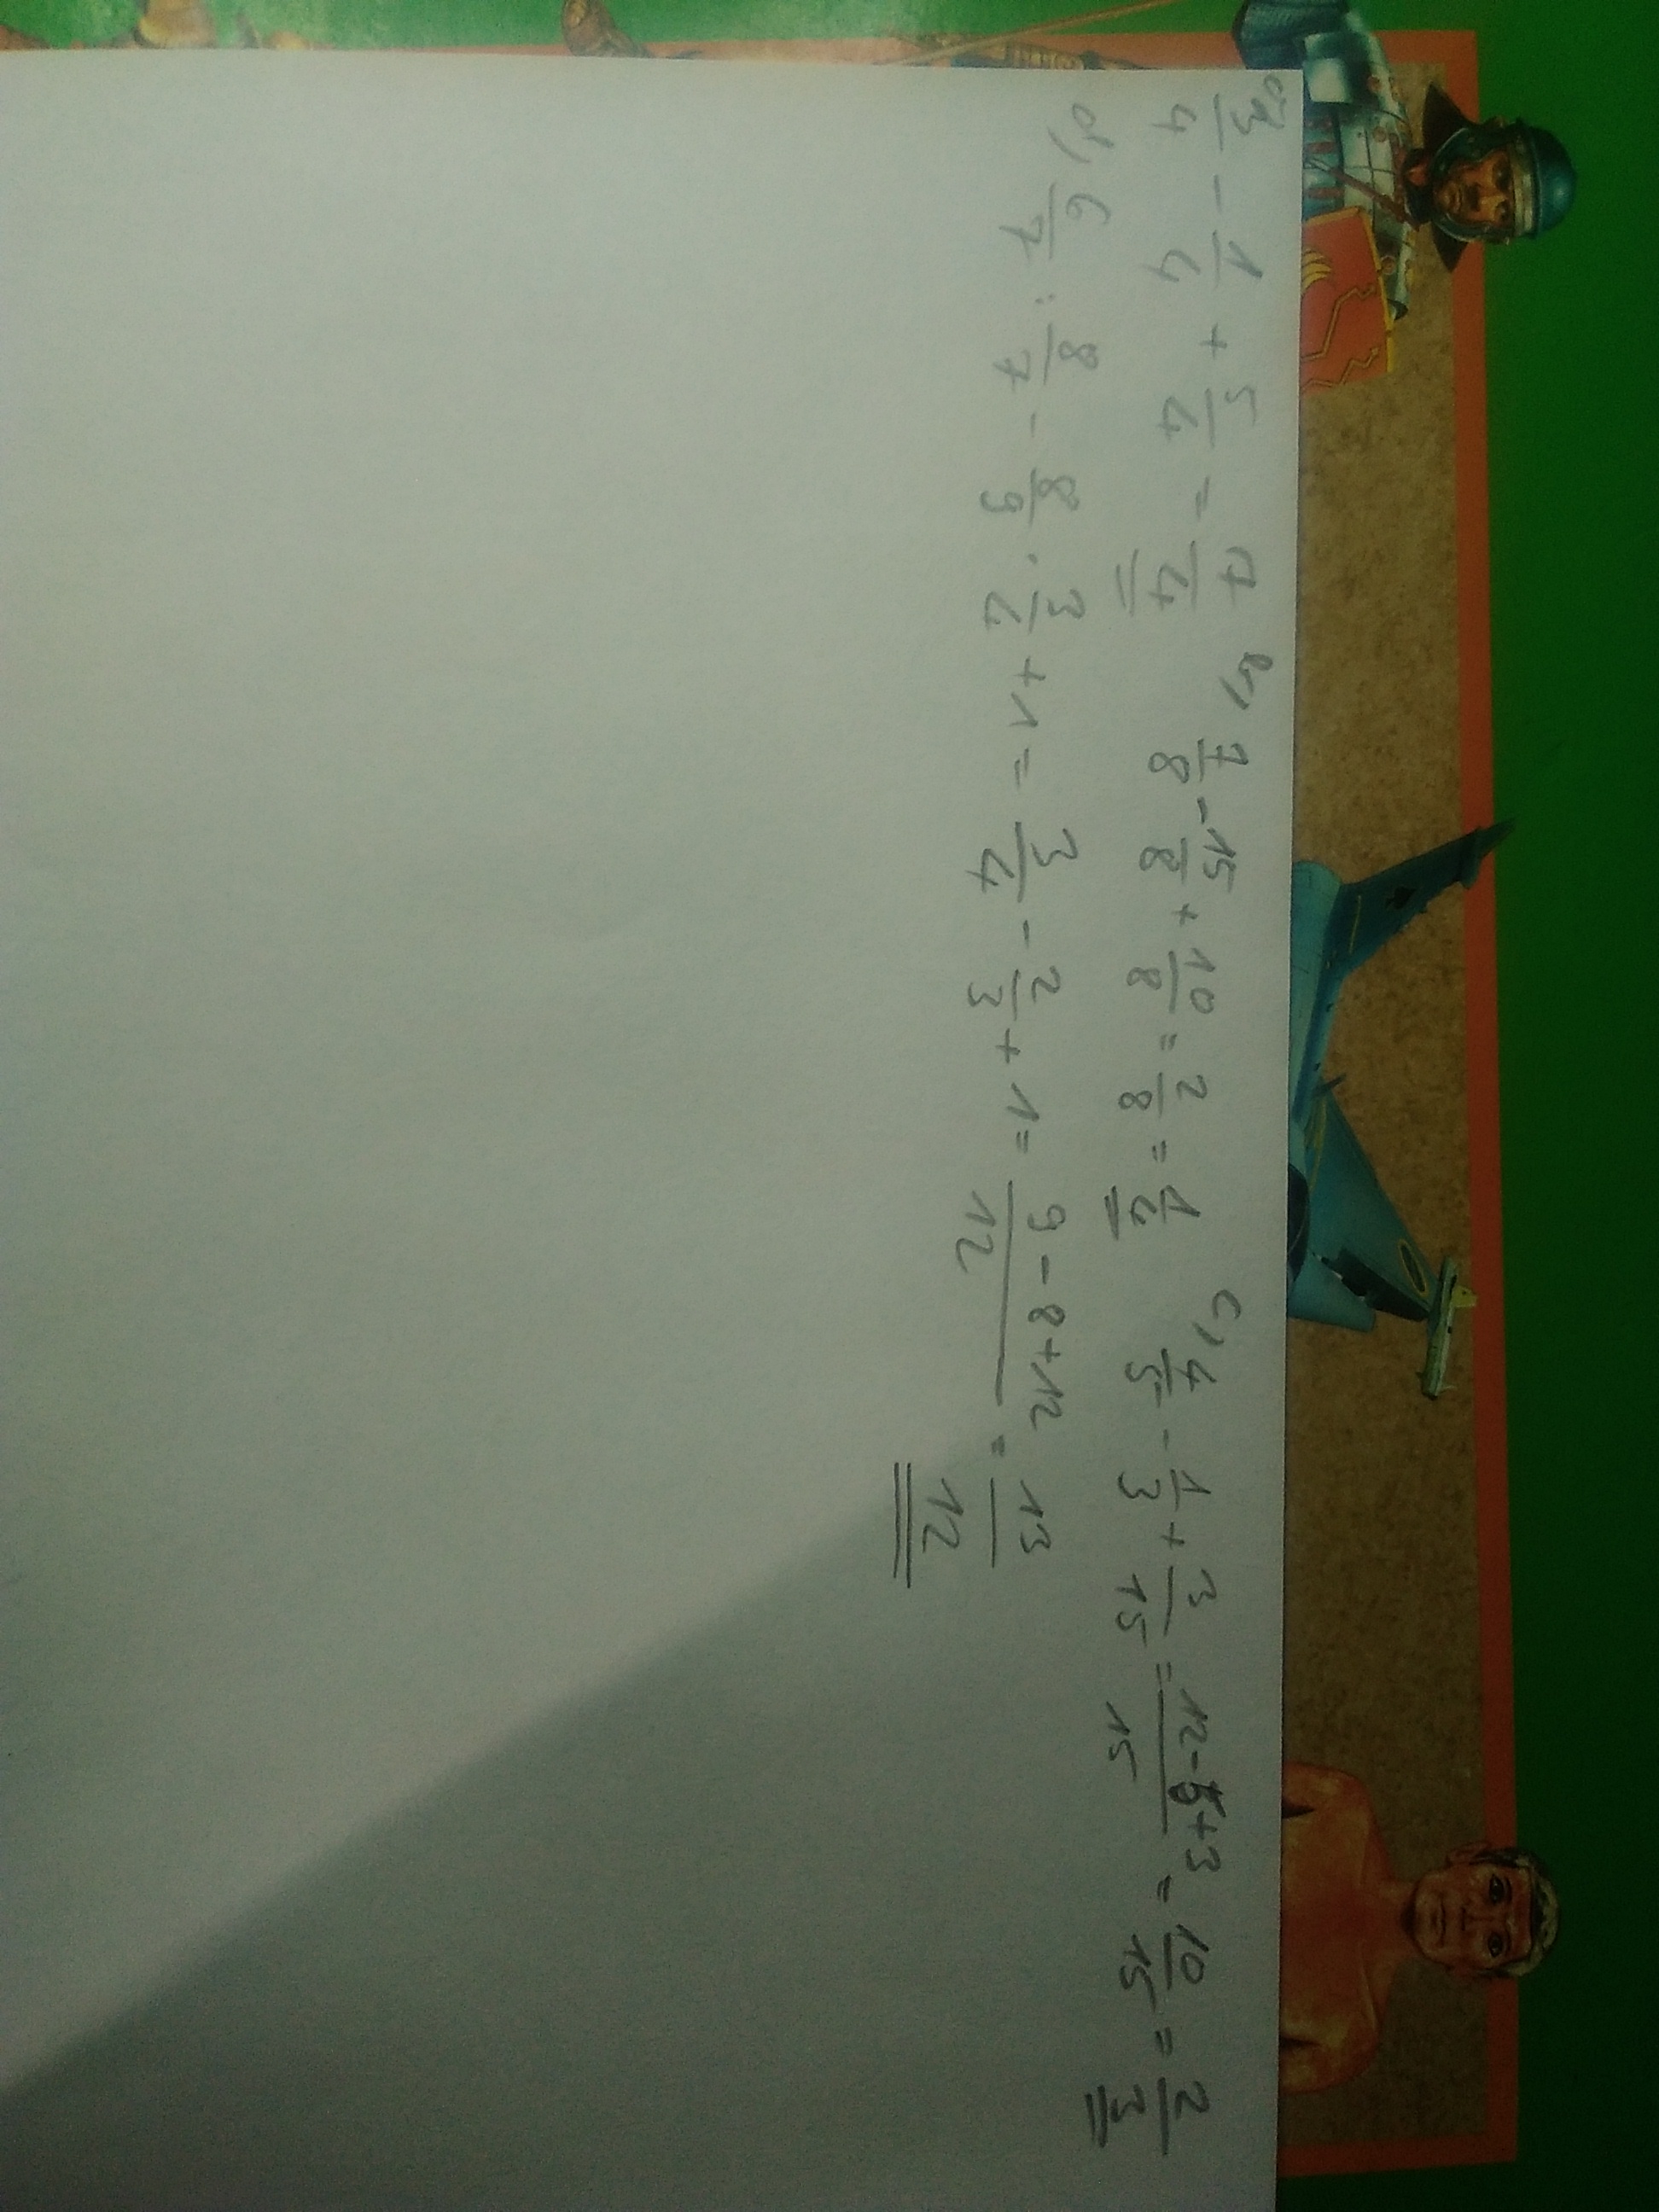 a) 3/4 - 1/4 + 5/4 = 7/4 b) 7/8 - 15/8 + 10/8 = 2/8 = 1/4 c) 4/5 - 1/3 + 3/15 = (12-5+3)/15 = 10/15 = 2/3
d) 6/7 : 8/7 - 8/9 · 3/4 + 1 = 3/4 - 2/3 + 1 = (9-8+12)/12 = 13/12